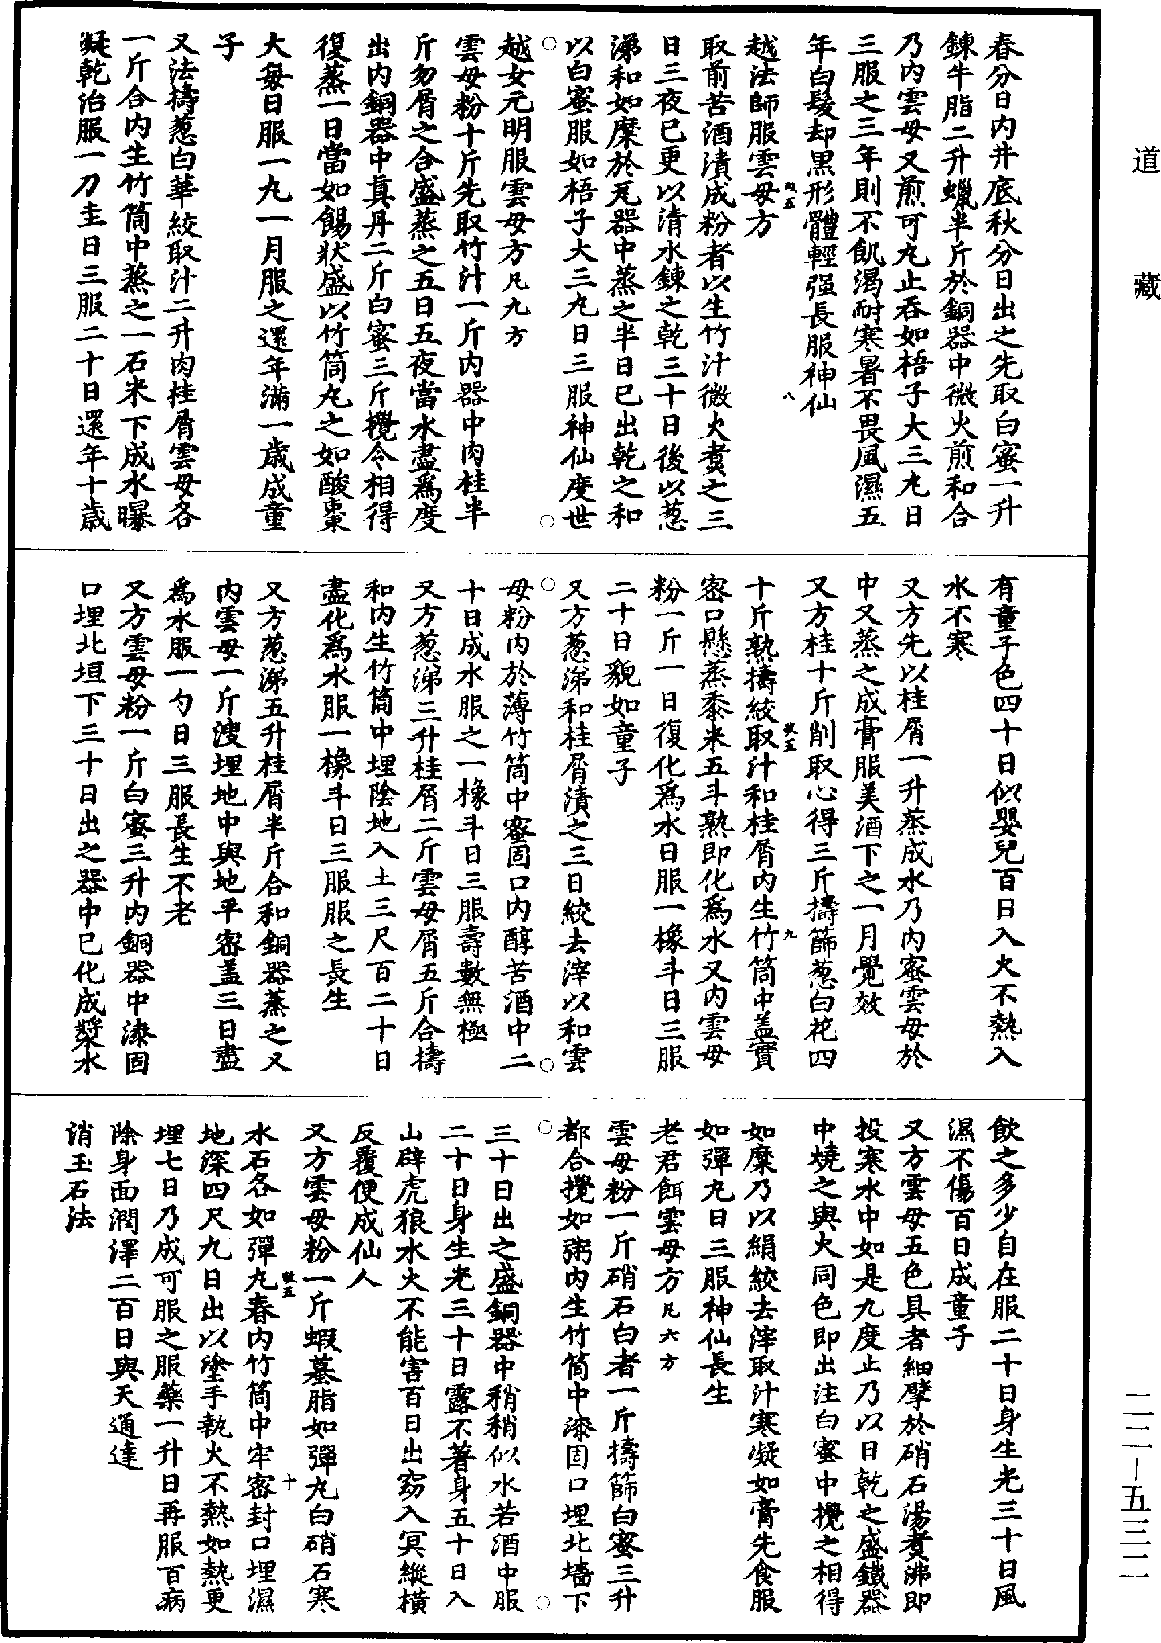 道藏
二二—五三二
春分日内井底秋分日出之先取白蜜一升
鍊牛脂二升蠟半斤於銅器中微火煎和合
乃内雲母又煎可丸止吞如梧子大三丸日
三服之三年則不飢渴耐寒暑不畏風濕五
年白髮却黑形體輕强長服神仙
八
越法師服雲母方
取前苦酒漬成粉者以生竹汁微火煑之三
日三夜已更以清水鍊之乾三十日後以葱
涕和如糜於瓦器中蒸之半日已出乾之和
以白蜜服如梧子大三丸日三服神仙度世
越女元明服雲母方凡九方
雲母粉十斤先取竹汁一斤内器中肉桂半
斤勿屑之合盛蒸之五日五夜當水盡爲度
出内銅器中真丹二斤白蜜三斤攪令相得
復蒸一日當如餳狀盛以竹筒丸之如酸棗
大每日服一丸一月服之還年滿一歲成童
子
又法擣葱白華絞取汁二升肉桂屑雲母各
一斤合内生竹筒中蒸之一石米下成水曝
凝乾治服一刀圭日三服二十日還年十歲
有童子色四十日似嬰兒百日入火不熱入
水不寒
又方先以桂屑一升蒸成水乃内蜜雲母於
中又蒸之成膏服美酒下之一月覺效
又方桂十斤削取心得三斤擣篩葱白花四
九
十斤熟擣絞取汁和桂屑内生竹筒中盖實
密口懸蒸黍米五斗熟即化爲水又内雲母
粉一斤一日復化爲水日服一橡斗日三服
二十日貌如童子
又方葱涕和桂屑漬之三日絞去滓以和雲
母粉内於薄竹筒中蜜固口内醇苦酒中二
十日成水服之一橡斗日三服壽數無極
又方葱涕三升桂屑二斤雲母屑五斤合擣
和内生竹筒中埋陰地入土三尺百二十日
盡化爲水服一橡斗日三服服之長生
又方葱涕五升桂屑半斤合和銅器蒸之又
内雲母一斤溲埋地中與地平密盖三日盡
爲水服一勺日三服長生不老
又方雲母粉一斤白蜜三升内銅器中漆固
口埋北垣下三十日出之器中已化成漿水
飲之多少自在服二十日身生光三十日風
濕不傷百日成童子
又方雲母五色具者細擘於硝石湯煑沸即
投寒水中如是九度止乃以日乾之盛鐵器
中燒之與火同色即出注白蜜中攪之相得
如糜乃以絹絞去滓取汁寒凝如膏先食服
如彈丸日三服神仙長生
老君餌雲母方凡六方
雲母粉一斤硝石白者一斤擣篩白蜜三升
都合攪如粥内生竹筒中漆固口埋北墻下
三十日出之盛銅器中稍稍似水若酒中服
二十日身生光三十日露不著身五十日入
山辟虎狼水火不能害百日出窈入冥縱橫
反覆便成仙人
又方雲母粉一斤蝦蟇脂如彈丸白硝石寒
十
水石各如彈丸舂内竹筒中牢密封口埋濕
地深四尺九日出以塗手執火不熱如熱更
埋七日乃成可服之服藥一升日再服百病
除身面潤澤二百日與天通達
消玉石法